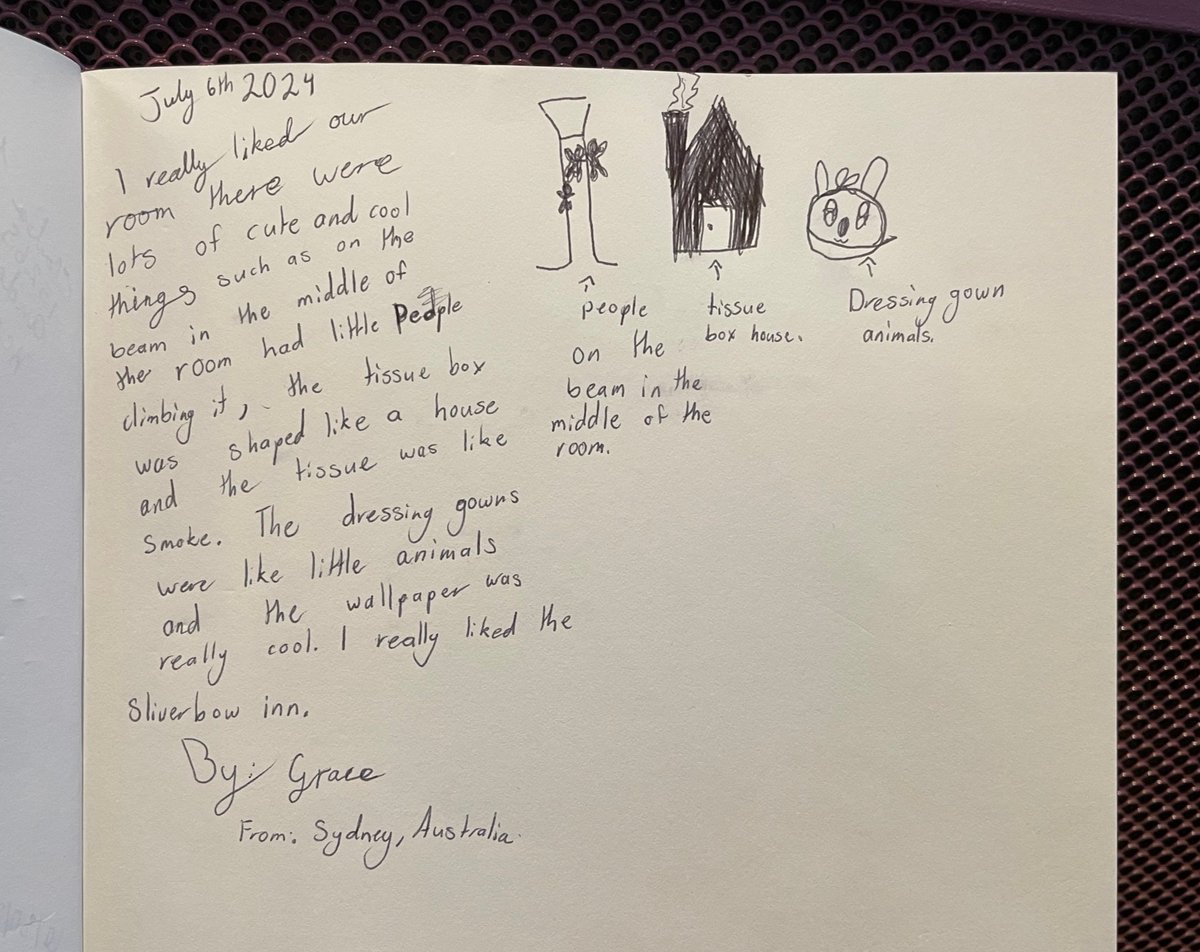 July 6th 2024
I really liked our
room there were
lots of cute and cool
things such as on the
beam in the middle of
the room had little People
climbing it, the tissue box
was shaped like a house
and the tissue was like
smoke. The dressing gowns
were like little animals
and the wallpaper was
really cool. I really liked the
Sliverbow inn.
By: Grace
From: Sydney, Australia.
people
on the
beam in the
middle of the
room.
tissue
box house.
Dressing gown
animals.